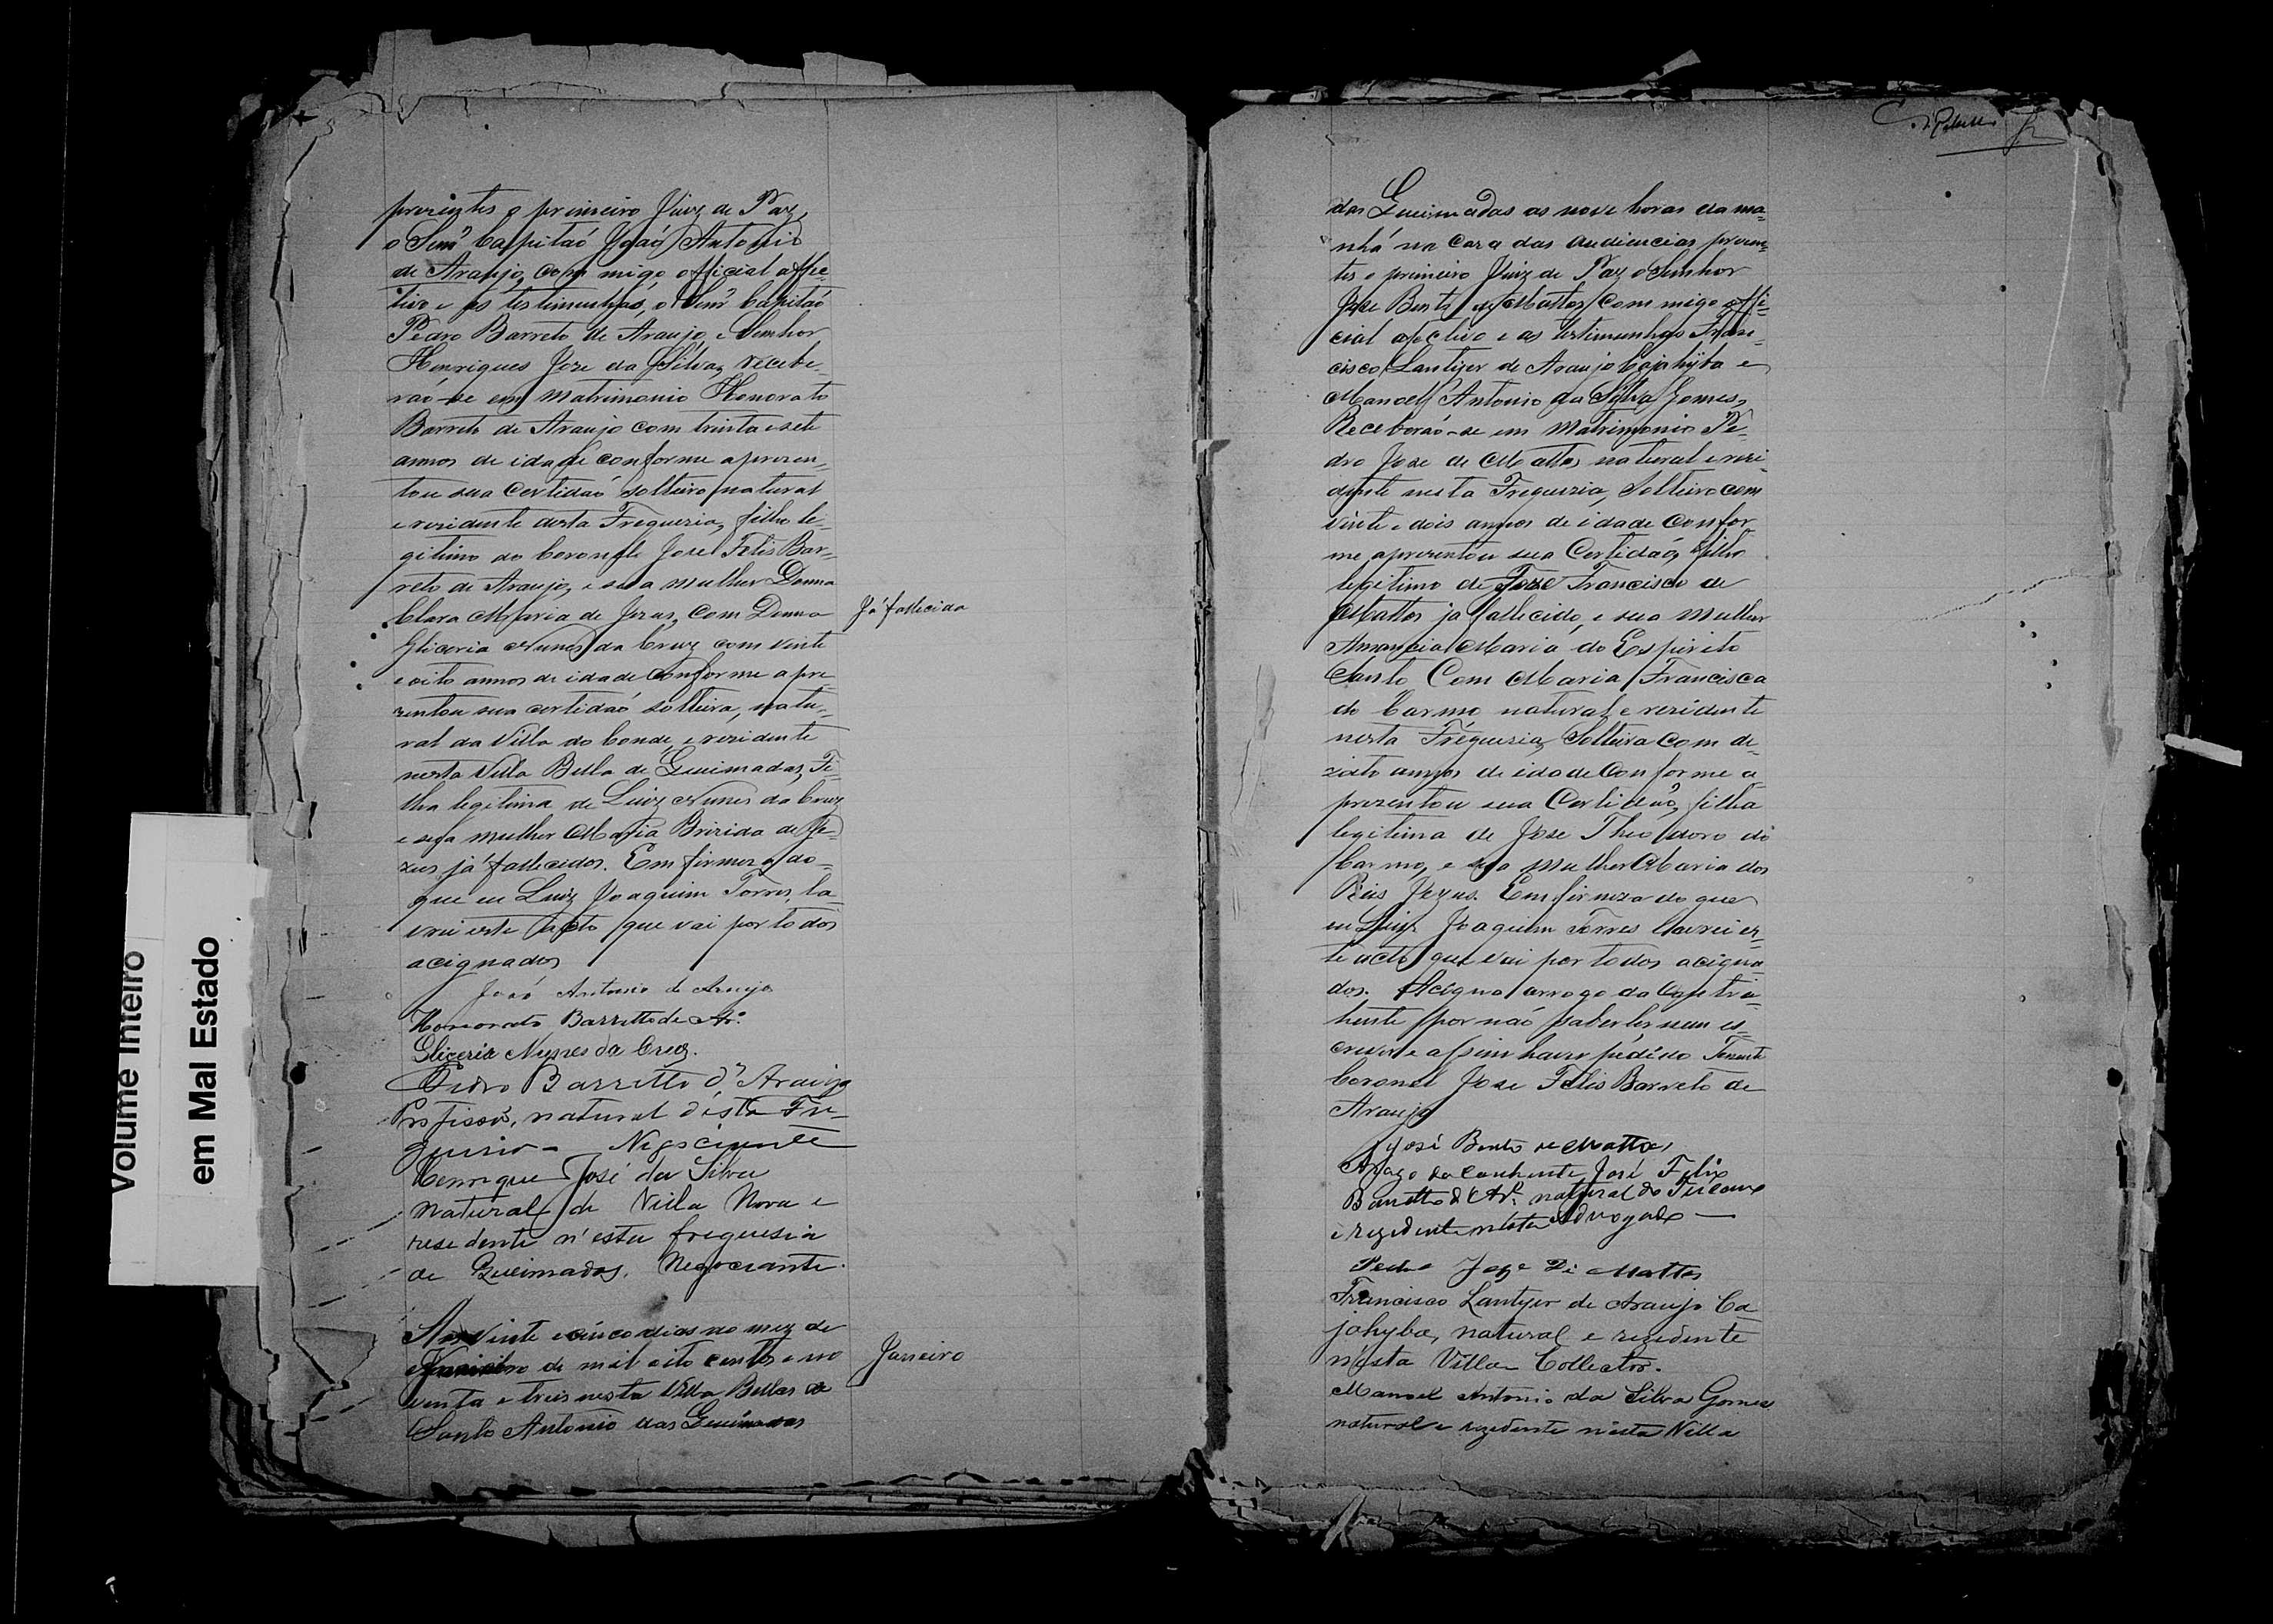 prezentes o primeiro Juiz de Paz,
o Senr Capitaó Joaó Antonio
de Araujo, com migo official affe-
tivo e as testimunhas, o Senr Capitaó
Pedro Barreto de Araujo, e Senhor
Henriques Joze da Silva, recebe-
raó-se em Matrimonio Honorato
Barreto de Araujo com trinta e sete
annos de idade conforme aprezen-
tou sua Certidaó solteiro natural
e rezidente desta Freguezia, filho le-
gitimo do Coronel Joze Felis Bar-
reto de Araujo, e sua mulher Donna
Clara Maria de Jezus, Com Donna
Já fallecida
Gliceria Nunes da Cruz com vinte
e oito annos de idade conforme apre-
zentou sua certidaó solteira, natu-
ral da Villa do Conde, e rezidente
nesta Villa Bella de Queimadas, Fi-
lha legitima de Luiz Nunes da Cruz
e sua mulher Maria Brizida de Je-
zus já fallecidos. Em firmeza do
que eu Luiz Joaquim Torres, la-
vrei este acto que vai por todos
acignados
Joaó Antonio de Araujo
Honorato Barretto de Arº
Gliceria Nunes da Cruz.
Pedro Barretto d'Araujo
Profissaó, natural d'esta Fre-
guesia - Negociante
Henrique José da Silva
natural de Villa Nova e
resedente n'esta freguesia
de Queimadas. Negociante.
Aos vinte e cinco dias no mez de
de mil oito centos e no
Janeiro
venta e treis nesta Villa Bella de
Santo Antonio das Queimadas
das Queimadas as nove horas da ma-
nhá na Caza das audiencias prezen-
tes o primeiro Juiz de Paz o Senhor
Joze Bento de Mattos com migo offi-
cial afectivo e as testimunhas Fran-
cisco Lantyer de Araujo Cajahyba e
Manoel Antonio da Silva Gomes,
Receberaó-se em Matrimonio Pe-
dro Joze de Mattos natural e rezi-
dente nesta Freguezia, Solteiro com
vinte e dois annos de idade Confor-
me aprezentou sua Certidaó, filho
legitimo de Joze Francisco de
Mattos ja fallecido, e sua mulher
Amancia Maria do Espirito
Santo Com Maria Francisca
do Carmo natural e rezidente
nesta Freguezia, Solteira com de-
zoito annos de idade Conforme a-
prezentou sua Certidaó, filha
legitima de Joze Theodoro do
Carmo, e sua mulher Maria dos
Reis Jezus. Em firmeza do que
eu Luiz Joaquim Torres lavrei es-
te acto que vai por todos acigna-
dos. Acigna arrogo da Contra-
hente por naó saber ler nem es-
crever e assim haver pedido Tenente
Coronel Joze Felis Barreto de
Araujo
José Bento de Mattos
Arogo da Contrhente José Felix
Barretto d'Arº. natural do Tucano
e rezedente nésta Advogado —
Pedro Joze Di Mattos
Francisco Lantyer de Araujo Ca-
jahyba, natural e rezedente
n'ésta Villa Collector.
Manoel Antonio da Silva Gomes
natural e rezedente n'ésta Villa
Volume Inteiro
em Mal Estado